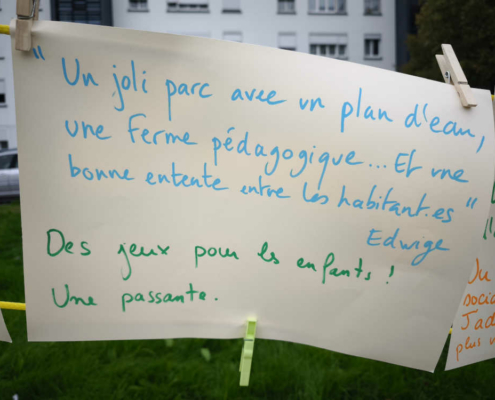 "Un joli parc avec un plan d'eau,
une ferme pédagogique... Et une
bonne entente entre les habitant.es"
Edwige
Des jeux pour les enfants !
Une passante.
socia
J'ad
plus